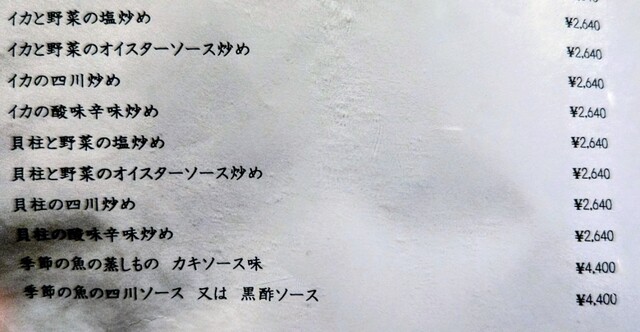 イカと野菜の塩炒め ¥2,640
イカと野菜のオイスターソース炒め ¥2,640
イカの四川炒め ¥2,640
イカの酸味辛味炒め ¥2,640
貝柱と野菜の塩炒め ¥2,640
貝柱と野菜のオイスターソース炒め ¥2,640
貝柱の四川炒め ¥2,640
貝柱の酸味辛味炒め ¥2,640
季節の魚の蒸しもの カキソース味 ¥4,400
季節の魚の四川ソース 又は 黒酢ソース ¥4,400